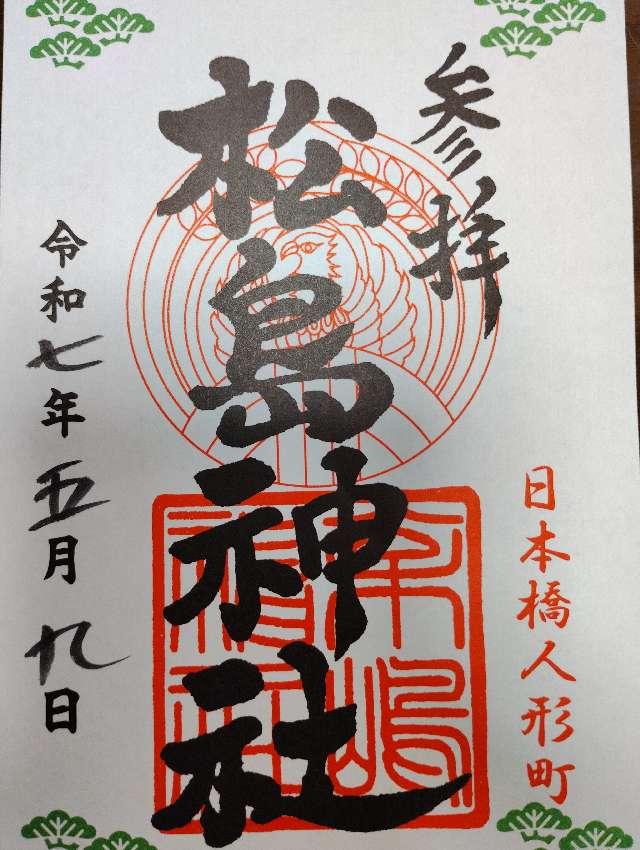 参拝
日本橋人形町
松島神社
松嶋神社
令和七年五月九日